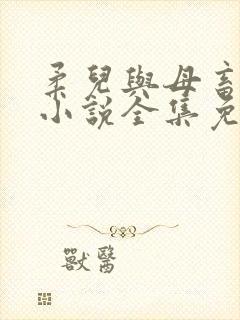 柔兒與母畜
小說全集免
獸醫